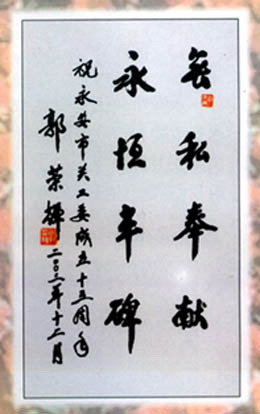 无私奉献
永恒丰碑
祝永安市关工委成立十五周年
郭荣辉
二〇〇二年十二月